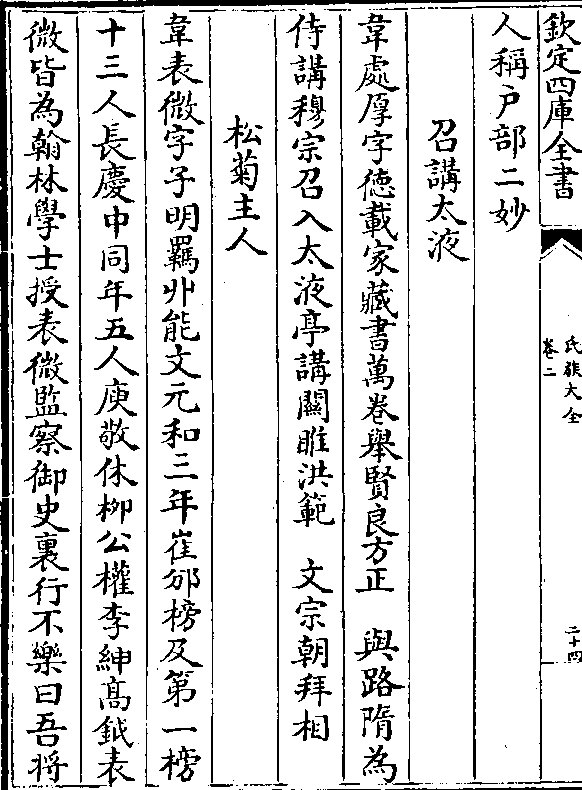 欽定四庫全書
氏族大全
卷二
二十四
人稱户部二妙
召講太液
韋處厚字徳載家藏書萬卷舉賢良方正　與路隋為
侍講穆宗召入太液亭講關雎洪範　文宗朝拜相
松菊主人
韋表微字子明羈丱能文元和三年崔邠榜及第一榜
十三人長慶中同年五人庾敬休栁公權李紳髙釴表
微皆為翰林學士授表微監察御史裏行不樂曰吾將